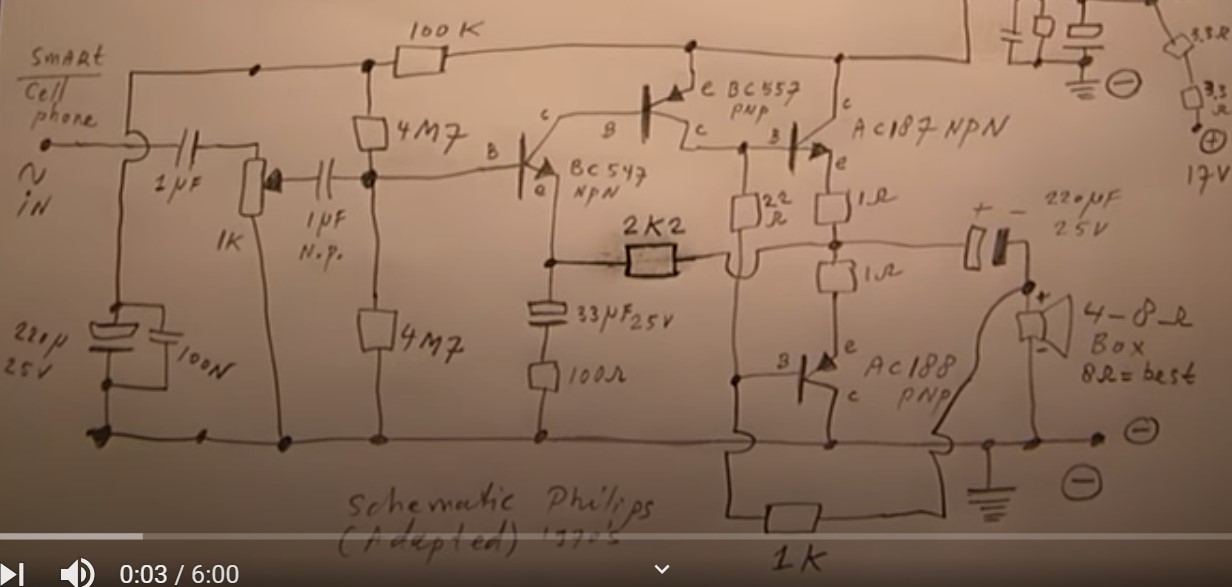 100K
Smart
Cell
phone
IN
1µF
4M7
1K
1µF
N.P.
B
c
e
BC547
NPN
B
e
c
BC557
PNP
B
c
e
AC187 NPN
22
Ω
1Ω
1Ω
2K2
+ -
220µF
25V
3.3Ω
3.3
Ω
+
17V
-
220µ
25V
100N
4M7
33µF25V
100Ω
B
e
c
AC188
PNP
+
-
4-8Ω
Box
8Ω=best
-
-
Schematic Philips
(Adapted) 1970's
1K
0:03 / 6:00